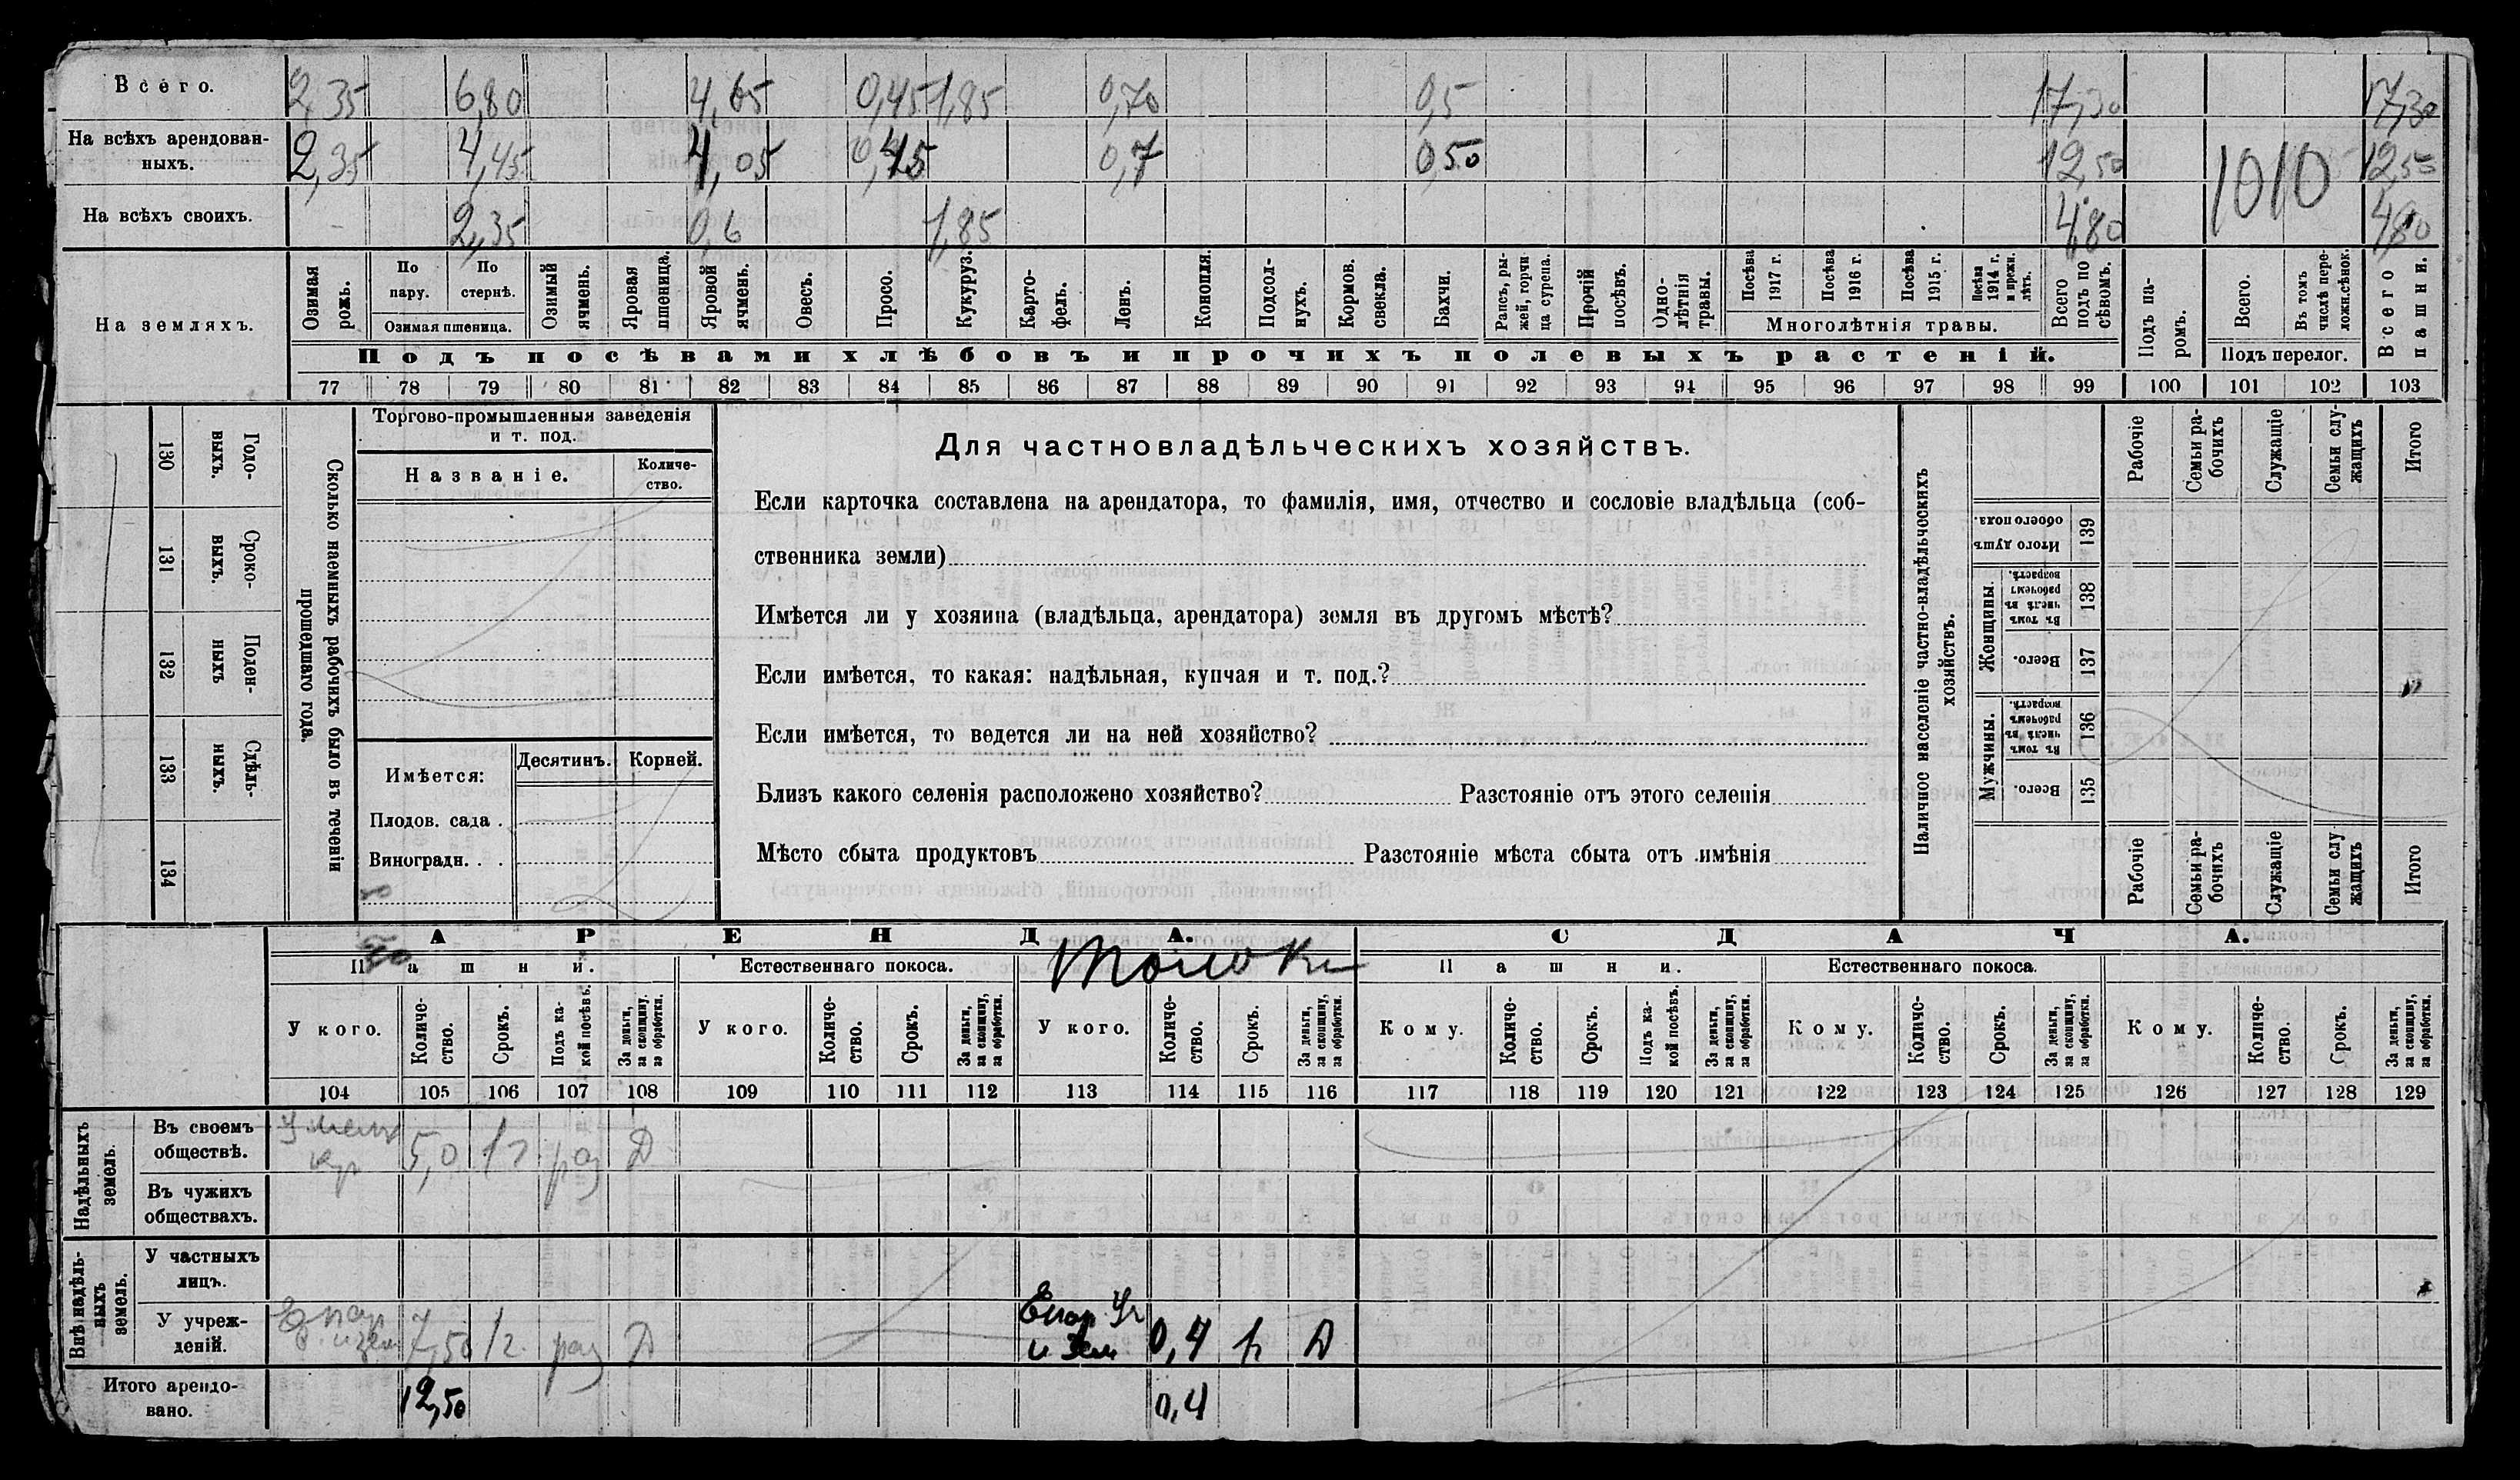 Всего. 2,35 6,80 4,65 0,45 1,85 0,70 0,5 17,30 17,30
На всѣхъ арендован-
ныхъ. 2,35 4,45 4,05 0,45 0,7 0,50 12,50 1010 12,50
На всѣхъ своихъ. - 2,35 0,6 1,85 4,80 4,80
На земляхъ.
Озимая рожь.
По пару.
По стернѣ.
Озимая пшеница.
Озимый ячмень.
Яровая пшеница.
Яровой ячмень.
Овесъ.
Просо.
Кукуруз.
Карто-
фель.
Ленъ.
Конопля.
Подсол-
нухъ.
Кормов. свекла.
Бахчи.
Рапсъ, ры-
жей, горчи
ца сурепа.
Прочій посѣвъ.
Одно-
лѣтнія
травы.
Посѣва 1917 г.
Посѣва 1916 г.
Посѣва 1915 г.
Посѣва 1914 г. и прежн. лѣтъ.
Многолѣтнія травы.
Всего подъ по
сѣвомъ.
Подъ па-
ромъ.
Всего.
Въ томъ числѣ пере-
ложн.сѣнок.
Подъ перелог.
Всего пашни.
Подъ посѣвами хлѣбовъ и прочихъ полевыхъ растеній.
77 78 79 80 81 82 83 84 85 86 87 88 89 90 91 92 93 94 95 96 97 98 99 100 101 102 103
130 Годо-
выхъ.
131 Сроко-
выхъ.
132 Поден-
ныхъ
133 Сдѣль-
ныхъ.
134
Сколько наемныхъ рабочихъ было въ теченіи
прошедшаго года.
Торгово-промышленныя заведенія
и т. под.
Названіе.
Количе-
ство.
Имѣется:
Десятинъ.
Корней.
Плодов. сада .
Виноградн. . .
Для частновладѣльческихъ хозяйствъ.
Если карточка составлена на арендатора, то фамилія, имя, отчество и сословіе владѣльца (соб-
ственника земли)
Имѣется ли у хозяина (владѣльца, арендатора) земля въ другомъ мѣстѣ?
Если имѣется, то какая: надѣльная, купчая и т. под.?
Если имѣется, то ведется ли на ней хозяйство?
Близъ какого селенія расположено хозяйство? Разстояніе отъ этого селенія
Мѣсто сбыта продуктовъ Разстояніе мѣста сбыта отъ имѣнія
Наличное населеніе частно-владѣльческихъ
хозяйствъ.
Рабочіе
Семьи ра-
бочихъ
Служащіе
Семьи слу-
жащихъ
Итого
Итого душъ обоего пола. 139
Женщины.
Въ томъ числѣ въ рабочемъ возрастѣ. 138
Всего. 137
Мужчины.
Въ томъ числѣ въ рабочемъ возрастѣ. 136
Всего. 135
Рабочіе
Семьи ра-
бочихъ
Служащіе
Семьи слу
жащихъ
Итого
АРЕНДА. СДАЧА.
Пашни. Естественнаго покоса. Толоки Пашни. Естественнаго покоса.
У кого.
Количе-
ство.
Срокъ.
Подъ ка-
кой посѣвъ.
За деньги,
за скопщину,
за обработки.
У кого.
Количе-
ство.
Срокъ.
За деньги,
за скопщину,
за обработки.
У кого.
Количе-
ство.
Срокъ.
За деньги,
за скопщину,
за обработки.
Кому.
Количе-
ство.
Срокъ.
Подъ ка-
кой посѣвъ.
За деньги,
за скопщину,
за обработки.
Кому.
Количе-
ство.
Срокъ.
За деньги,
за скопщину,
за обработки.
Кому.
Количе-
ство.
Срокъ.
За деньги,
за скопщину,
за обработки.
104 105 106 107 108 109 110 111 112 113 114 115 116 117 118 119 120 121 122 123 124 125 126 127 128 129
Надѣльныхъ
земель.
Въ своемъ
обществѣ. кр 5,0 1г раз Д
Въ чужихъ
обществахъ.
Внѣ надѣль-
ныхъ
земель.
У частныхъ
лицъ.
У учреж-
деній. 7,50 1г. раз Д 0,4 Д
Итого арендо-
вано. 12,50 0,4